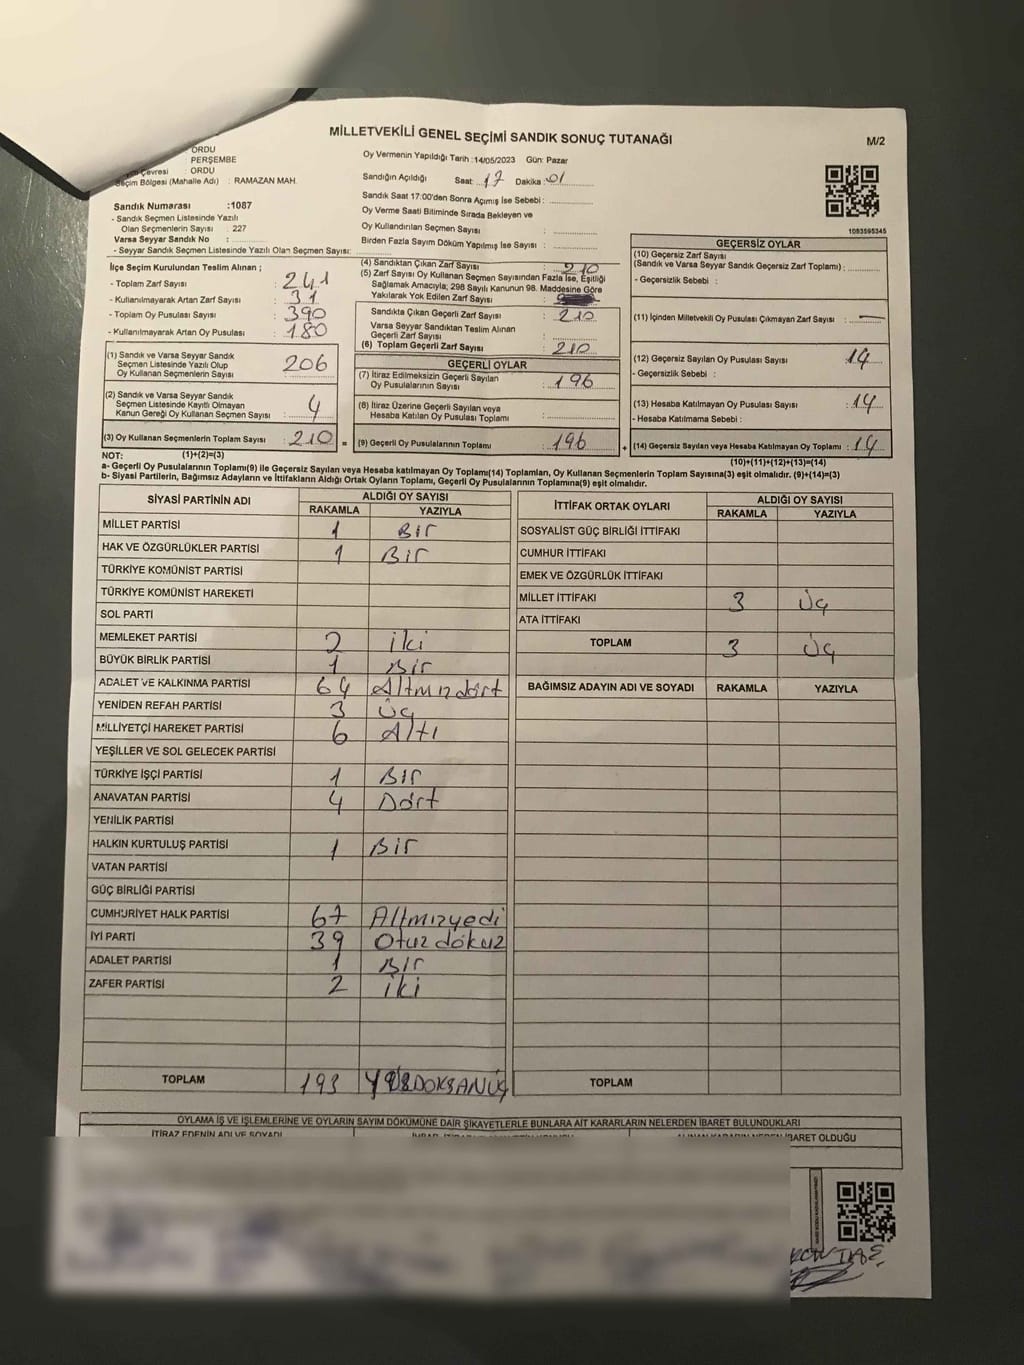 MİLLETVEKİLİ GENEL SEÇİMİ SANDIK SONUÇ TUTANAĞI
M/2
ORDU
PERŞEMBE
Çevresi : ORDU
Seçim Bölgesi (Mahalle Adı) : RAMAZAN MAH.
Sandık Numarası :1087
- Sandık Seçmen Listesinde Yazılı
Olan Seçmenlerin Sayısı : 227
Varsa Seyyar Sandık No :
- Seyyar Sandık Seçmen Listesinde Yazılı Olan Seçmen Sayısı:
Oy Vermenin Yapıldığı Tarih :14/05/2023 Gün: Pazar
Sandığın Açıldığı Saat: 17 Dakika: 01
Sandık Saat 17:00'den Sonra Açılmış İse Sebebi :
Oy Verme Saati Bitiminde Sırada Bekleyen ve
Oy Kullandırılan Seçmen Sayısı :
Birden Fazla Sayım Döküm Yapılmış İse Sayısı :
1083595345
İlçe Seçim Kurulundan Teslim Alınan ;
- Toplam Zarf Sayısı : 241
- Kullanılmayarak Artan Zarf Sayısı : 31
- Toplam Oy Pusulası Sayısı : 390
- Kullanılmayarak Artan Oy Pusulası : 180
(1) Sandık ve Varsa Seyyar Sandık
Seçmen Listesinde Yazılı Olup
Oy Kullanan Seçmenlerin Sayısı : 206
(2) Sandık ve Varsa Seyyar Sandık
Seçmen Listesinde Kayıtlı Olmayan
Kanun Gereği Oy Kullanan Seçmen Sayısı : 4
(3) Oy Kullanan Seçmenlerin Toplam Sayısı : 210 =
(4) Sandıktan Çıkan Zarf Sayısı : 210
(5) Zarf Sayısı Oy Kullanan Seçmen Sayısından Fazla İse, Eşitliği
Sağlamak Amacıyla; 298 Sayılı Kanunun 98. Maddesine Göre
Yakılarak Yok Edilen Zarf Sayısı :
Sandıkta Çıkan Geçerli Zarf Sayısı : 210
Varsa Seyyar Sandıktan Teslim Alınan
Geçerli Zarf Sayısı :
(6) Toplam Geçerli Zarf Sayısı : 210
GEÇERLİ OYLAR
(7) İtiraz Edilmeksizin Geçerli Sayılan
Oy Pusulalarının Sayısı : 196
(8) İtiraz Üzerine Geçerli Sayılan veya
Hesaba Katılan Oy Pusulası Toplamı :
(9) Geçerli Oy Pusulalarının Toplamı : 196 +
GEÇERSİZ OYLAR
(10) Geçersiz Zarf Sayısı
(Sandık ve Varsa Seyyar Sandık Geçersiz Zarf Toplamı) :
- Geçersizlik Sebebi :
(11) İçinden Milletvekili Oy Pusulası Çıkmayan Zarf Sayısı : —
(12) Geçersiz Sayılan Oy Pusulası Sayısı : 14
- Geçersizlik Sebebi :
(13) Hesaba Katılmayan Oy Pusulası Sayısı : 14
- Hesaba Katılmama Sebebi :
(14) Geçersiz Sayılan veya Hesaba Katılmayan Oy Toplamı : 14
NOT: (1)+(2)=(3) (10)+(11)+(12)+(13)=(14)
a- Geçerli Oy Pusulalarının Toplamı(9) ile Geçersiz Sayılan veya Hesaba katılmayan Oy Toplamı(14) Toplamları, Oy Kullanan Seçmenlerin Toplam Sayısına(3) eşit olmalıdır. (9)+(14)=(3)
b- Siyasi Partilerin, Bağımsız Adayların ve İttifakların Aldığı Ortak Oyların Toplamı, Geçerli Oy Pusulalarının Toplamına(9) eşit olmalıdır.
SİYASİ PARTİNİN ADI ALDIĞI OY SAYISI
RAKAMLA YAZIYLA
MİLLET PARTİSİ 1 Bir
HAK VE ÖZGÜRLÜKLER PARTİSİ 1 Bir
TÜRKİYE KOMÜNİST PARTİSİ
TÜRKİYE KOMÜNİST HAREKETİ
SOL PARTİ
MEMLEKET PARTİSİ 2 iki
BÜYÜK BİRLİK PARTİSİ 1 Bir
ADALET VE KALKINMA PARTİSİ 64 Altmızdört
YENİDEN REFAH PARTİSİ 3 Üç
MİLLİYETÇİ HAREKET PARTİSİ 6 Altı
YEŞİLLER VE SOL GELECEK PARTİSİ
TÜRKİYE İŞÇİ PARTİSİ 1 Bir
ANAVATAN PARTİSİ 4 Dört
YENİLİK PARTİSİ
HALKIN KURTULUŞ PARTİSİ 1 Bir
VATAN PARTİSİ
GÜÇ BİRLİĞİ PARTİSİ
CUMHURİYET HALK PARTİSİ 67 Altmızyedi
İYİ PARTİ 39 Otuz dokuz
ADALET PARTİSİ 1 Bir
ZAFER PARTİSİ 2 iki
TOPLAM 193 YÜZDOKSANÜÇ
İTTİFAK ORTAK OYLARI ALDIĞI OY SAYISI
RAKAMLA YAZIYLA
SOSYALİST GÜÇ BİRLİĞİ İTTİFAKI
CUMHUR İTTİFAKI
EMEK VE ÖZGÜRLÜK İTTİFAKI
MİLLET İTTİFAKI 3 Üç
ATA İTTİFAKI
TOPLAM 3 Üç
BAĞIMSIZ ADAYIN ADI VE SOYADI RAKAMLA YAZIYLA
TOPLAM
OYLAMA İŞ VE İŞLEMLERİNE VE OYLARIN SAYIM DÖKÜMÜNE DAİR ŞİKAYETLERLE BUNLARA AİT KARARLARIN NELERDEN İBARET BULUNDUKLARI
İTİRAZ EDENİN ADI VE SOYADI
ALINAN KARARIN NEDEN İBARET OLDUĞU